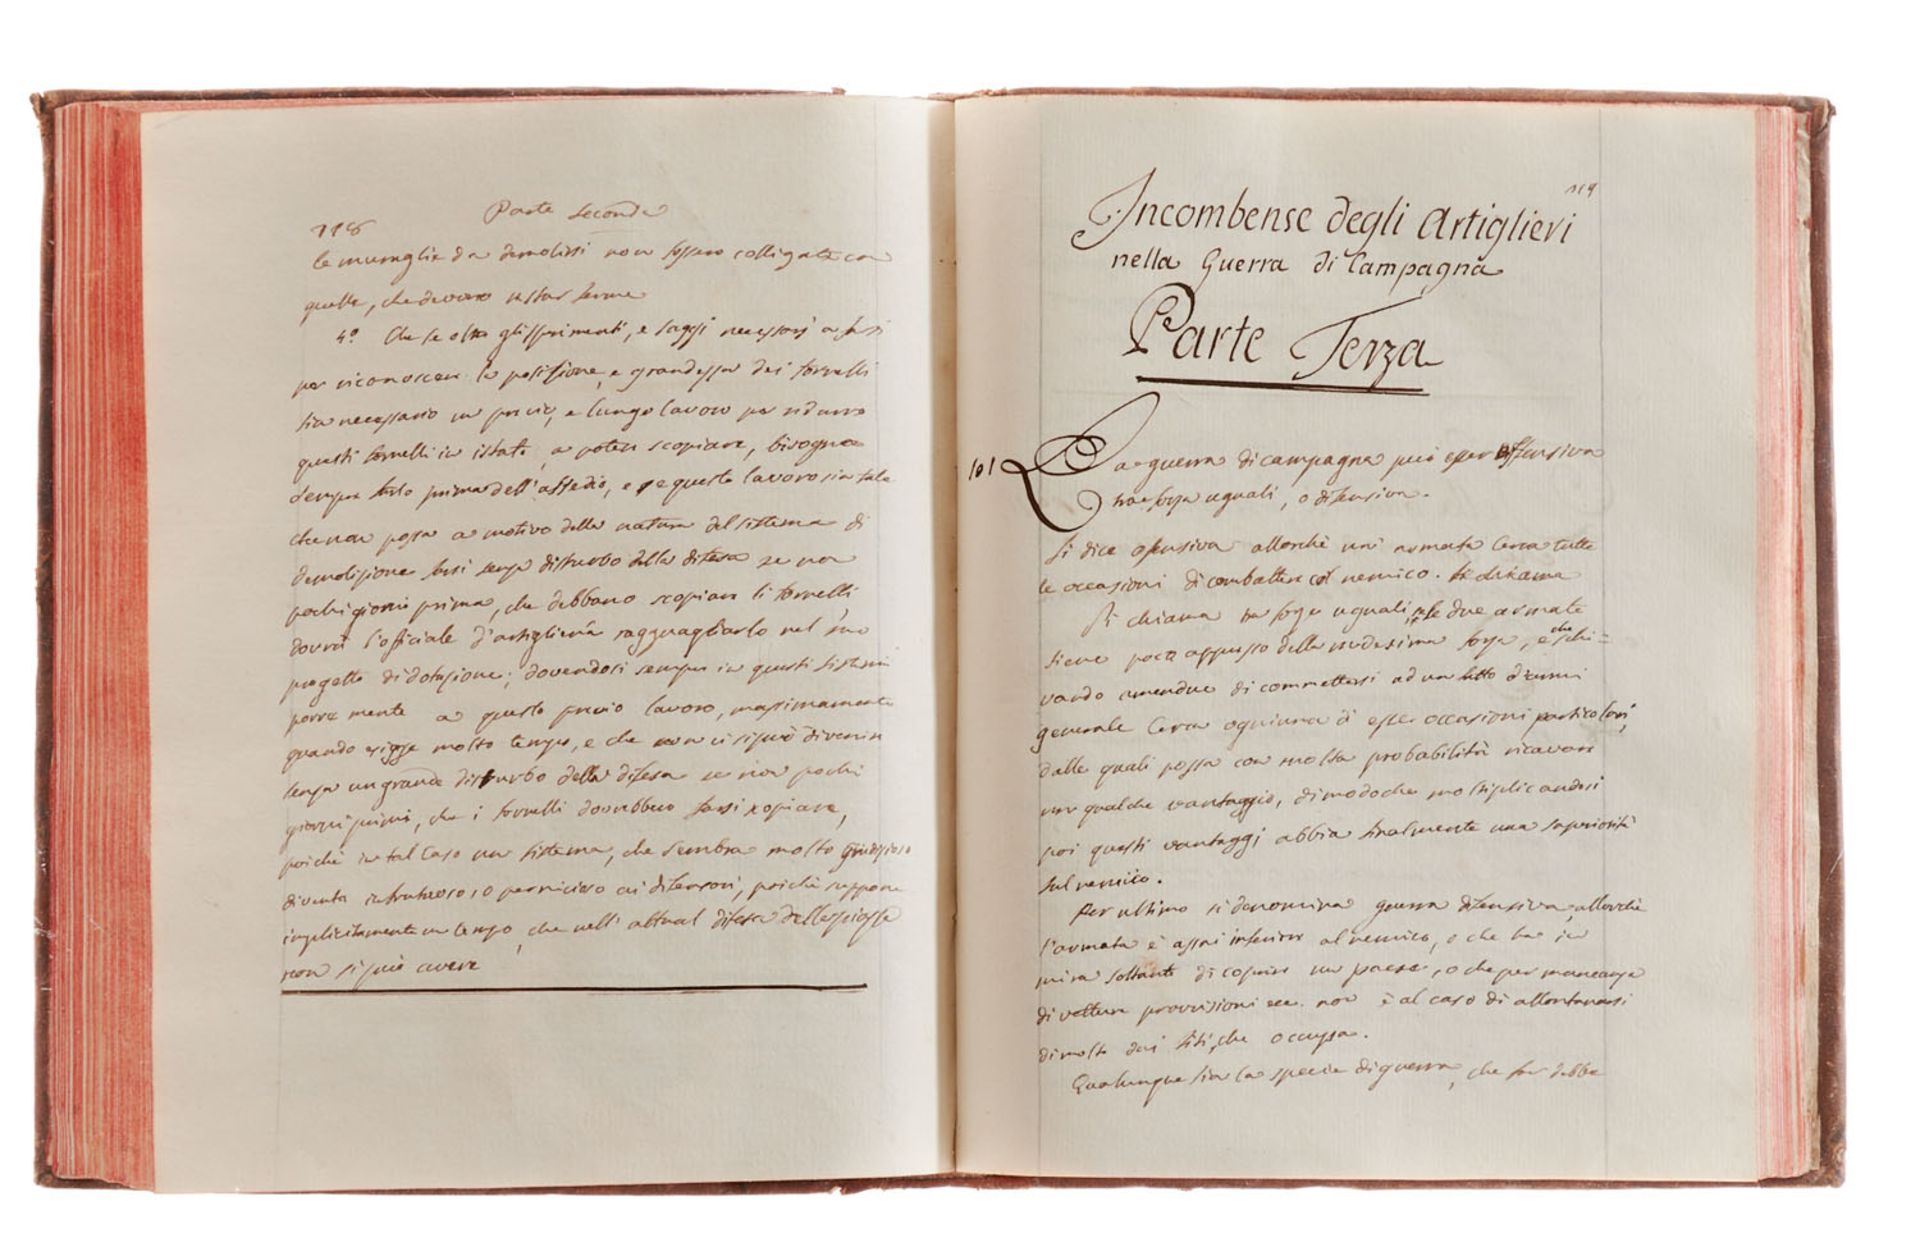 118
Parte Seconda
le muraglie da demolirsi non fossero colligate con
quelle, che devono restar ferme
4.° Che se oltre gli sperimenti, e saggi necessarj a farsi
per riconoscere la posizione, e grandezza dei fornelli
sia necessario un previo, e lungo lavoro per ridurre
questi fornelli in istato a poter scopiare, bisogna
sempre farlo prima dell'assedio, e se questo lavoro sia tale
che non possa a motivo della natura del sistema di
demolizione farsi senza disturbo della difesa se non
pochi giorni prima, che debbano scopiare li fornelli,
dovrà l'officiale d'artiglieria ragguagliarlo nel suo
progetto di dotazione; dovendosi sempre in questi sistemi
porre mente a questo previo lavoro, massimamente
quando esigge molto tempo, e che non vi si può divenire
senza un grande disturbo della difesa se non pochi
giorni primi, che i fornelli dovrebbero farsi scopiare,
poichè in tal caso un sistema, che sembra molto giudizioso
diventa infruttuoso, o pernicioso ai difensori, poichè suppone
implicitamente un tempo, che nell'attual difesa delle piazze
non si può avere
119
Incombense degli Artiglieri
nella Guerra di Campagna
Parte Terza
101
La guerra di campagna può esser offensiva
tra forze uguali, o difensiva.
Si dice ofensiva allorchè un'armata cerca tutte
le occasioni di combattere col nemico.
Si chiama tra forze uguali, se le due armate
siene poco appresso della medesima forza, e che schi=
vando amendue di commettersi ad un fatto d'armi
generale cerca ogniuna di esse occasioni particolari,
dalle quali possa con molta probabilità ricavare
un qualche vantaggio, di modo che moltiplicandosi
poi questi vantaggi abbia finalmente una superiorità
sul nemico.
Per ultimo si denomina guerra difensiva, allorchè
l'armata è assai inferiore al nemico, o che ha in
mira soltanto di coprire un paese, o che per mancanza
di vetture provvisioni ecc. non è al caso di allontanarsi
di molto dai siti, che occupa.
Qualunque sia la specie di guerra, che far debba